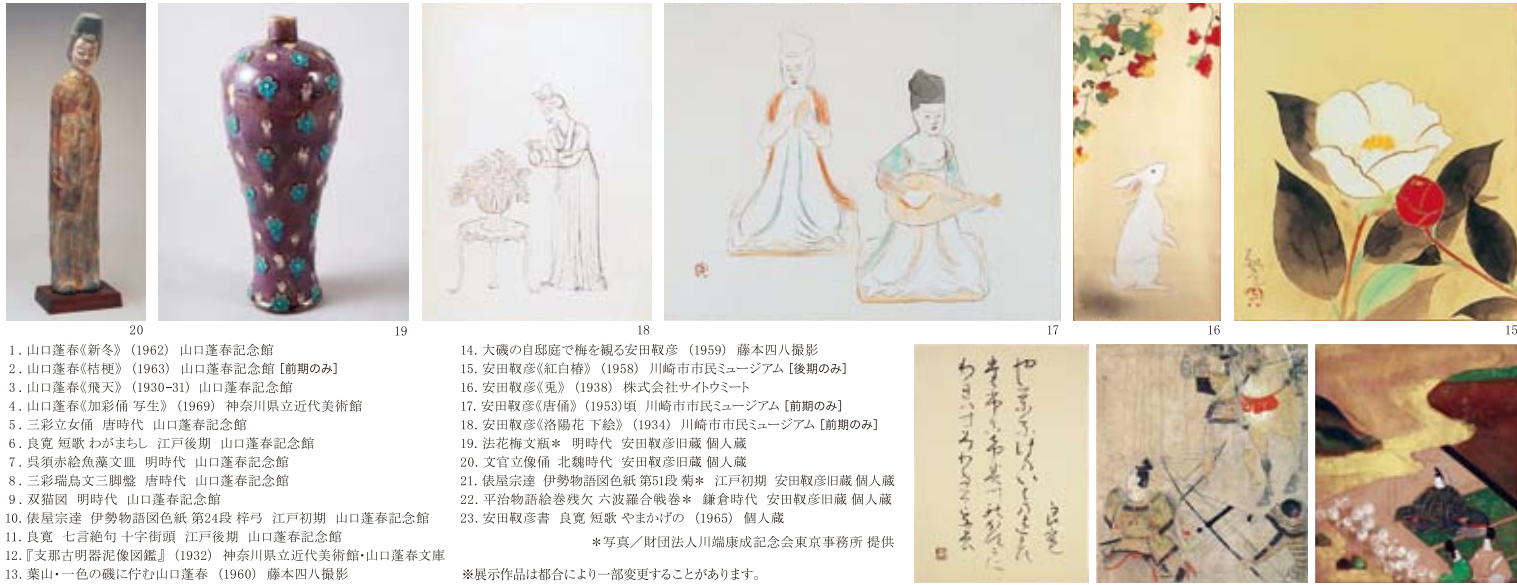 20
19
18
17
16
15
1. 山口蓬春《新冬》 (1962) 山口蓬春記念館
2. 山口蓬春《桔梗》 (1963) 山口蓬春記念館 [前期のみ]
3. 山口蓬春《飛天》 (1930-31) 山口蓬春記念館
4. 山口蓬春《加彩俑 写生》 (1969) 神奈川県立近代美術館
5. 三彩立女俑 唐時代 山口蓬春記念館
6. 良寛 短歌 わがまちし 江戸後期 山口蓬春記念館
7. 呉須赤絵魚藻文皿 明時代 山口蓬春記念館
8. 三彩瑞鳥文三脚盤 唐時代 山口蓬春記念館
9. 双猫図 明時代 山口蓬春記念館
10. 俵屋宗達 伊勢物語図色紙 第24段 梓弓 江戸初期 山口蓬春記念館
11. 良寛 七言絶句 十字街頭 江戸後期 山口蓬春記念館
12.『支那古明器泥像図鑑』 (1932) 神奈川県立近代美術館・山口蓬春文庫
13. 葉山・一色の磯に佇む山口蓬春 (1960) 藤本四八撮影
14. 大磯の自邸庭で梅を観る安田靫彦 (1959) 藤本四八撮影
15. 安田靫彦《紅白椿》 (1958) 川崎市市民ミュージアム [後期のみ]
16. 安田靫彦《兎》 (1938) 株式会社サイトウミート
17. 安田靫彦《唐俑》 (1953)頃 川崎市市民ミュージアム [前期のみ]
18. 安田靫彦《洛陽花 下絵》 (1934) 川崎市市民ミュージアム [前期のみ]
19. 法花梅文瓶＊ 明時代 安田靫彦旧蔵 個人蔵
20. 文官立像俑 北魏時代 安田靫彦旧蔵 個人蔵
21. 俵屋宗達 伊勢物語図色紙 第51段 菊＊ 江戸初期 安田靫彦旧蔵 個人蔵
22. 平治物語絵巻残欠 六波羅合戦巻＊ 鎌倉時代 安田靫彦旧蔵 個人蔵
23. 安田靫彦書 良寛 短歌 やまかげの (1965) 個人蔵
＊写真／財団法人川端康成記念会東京事務所 提供
※展示作品は都合により一部変更することがあります。